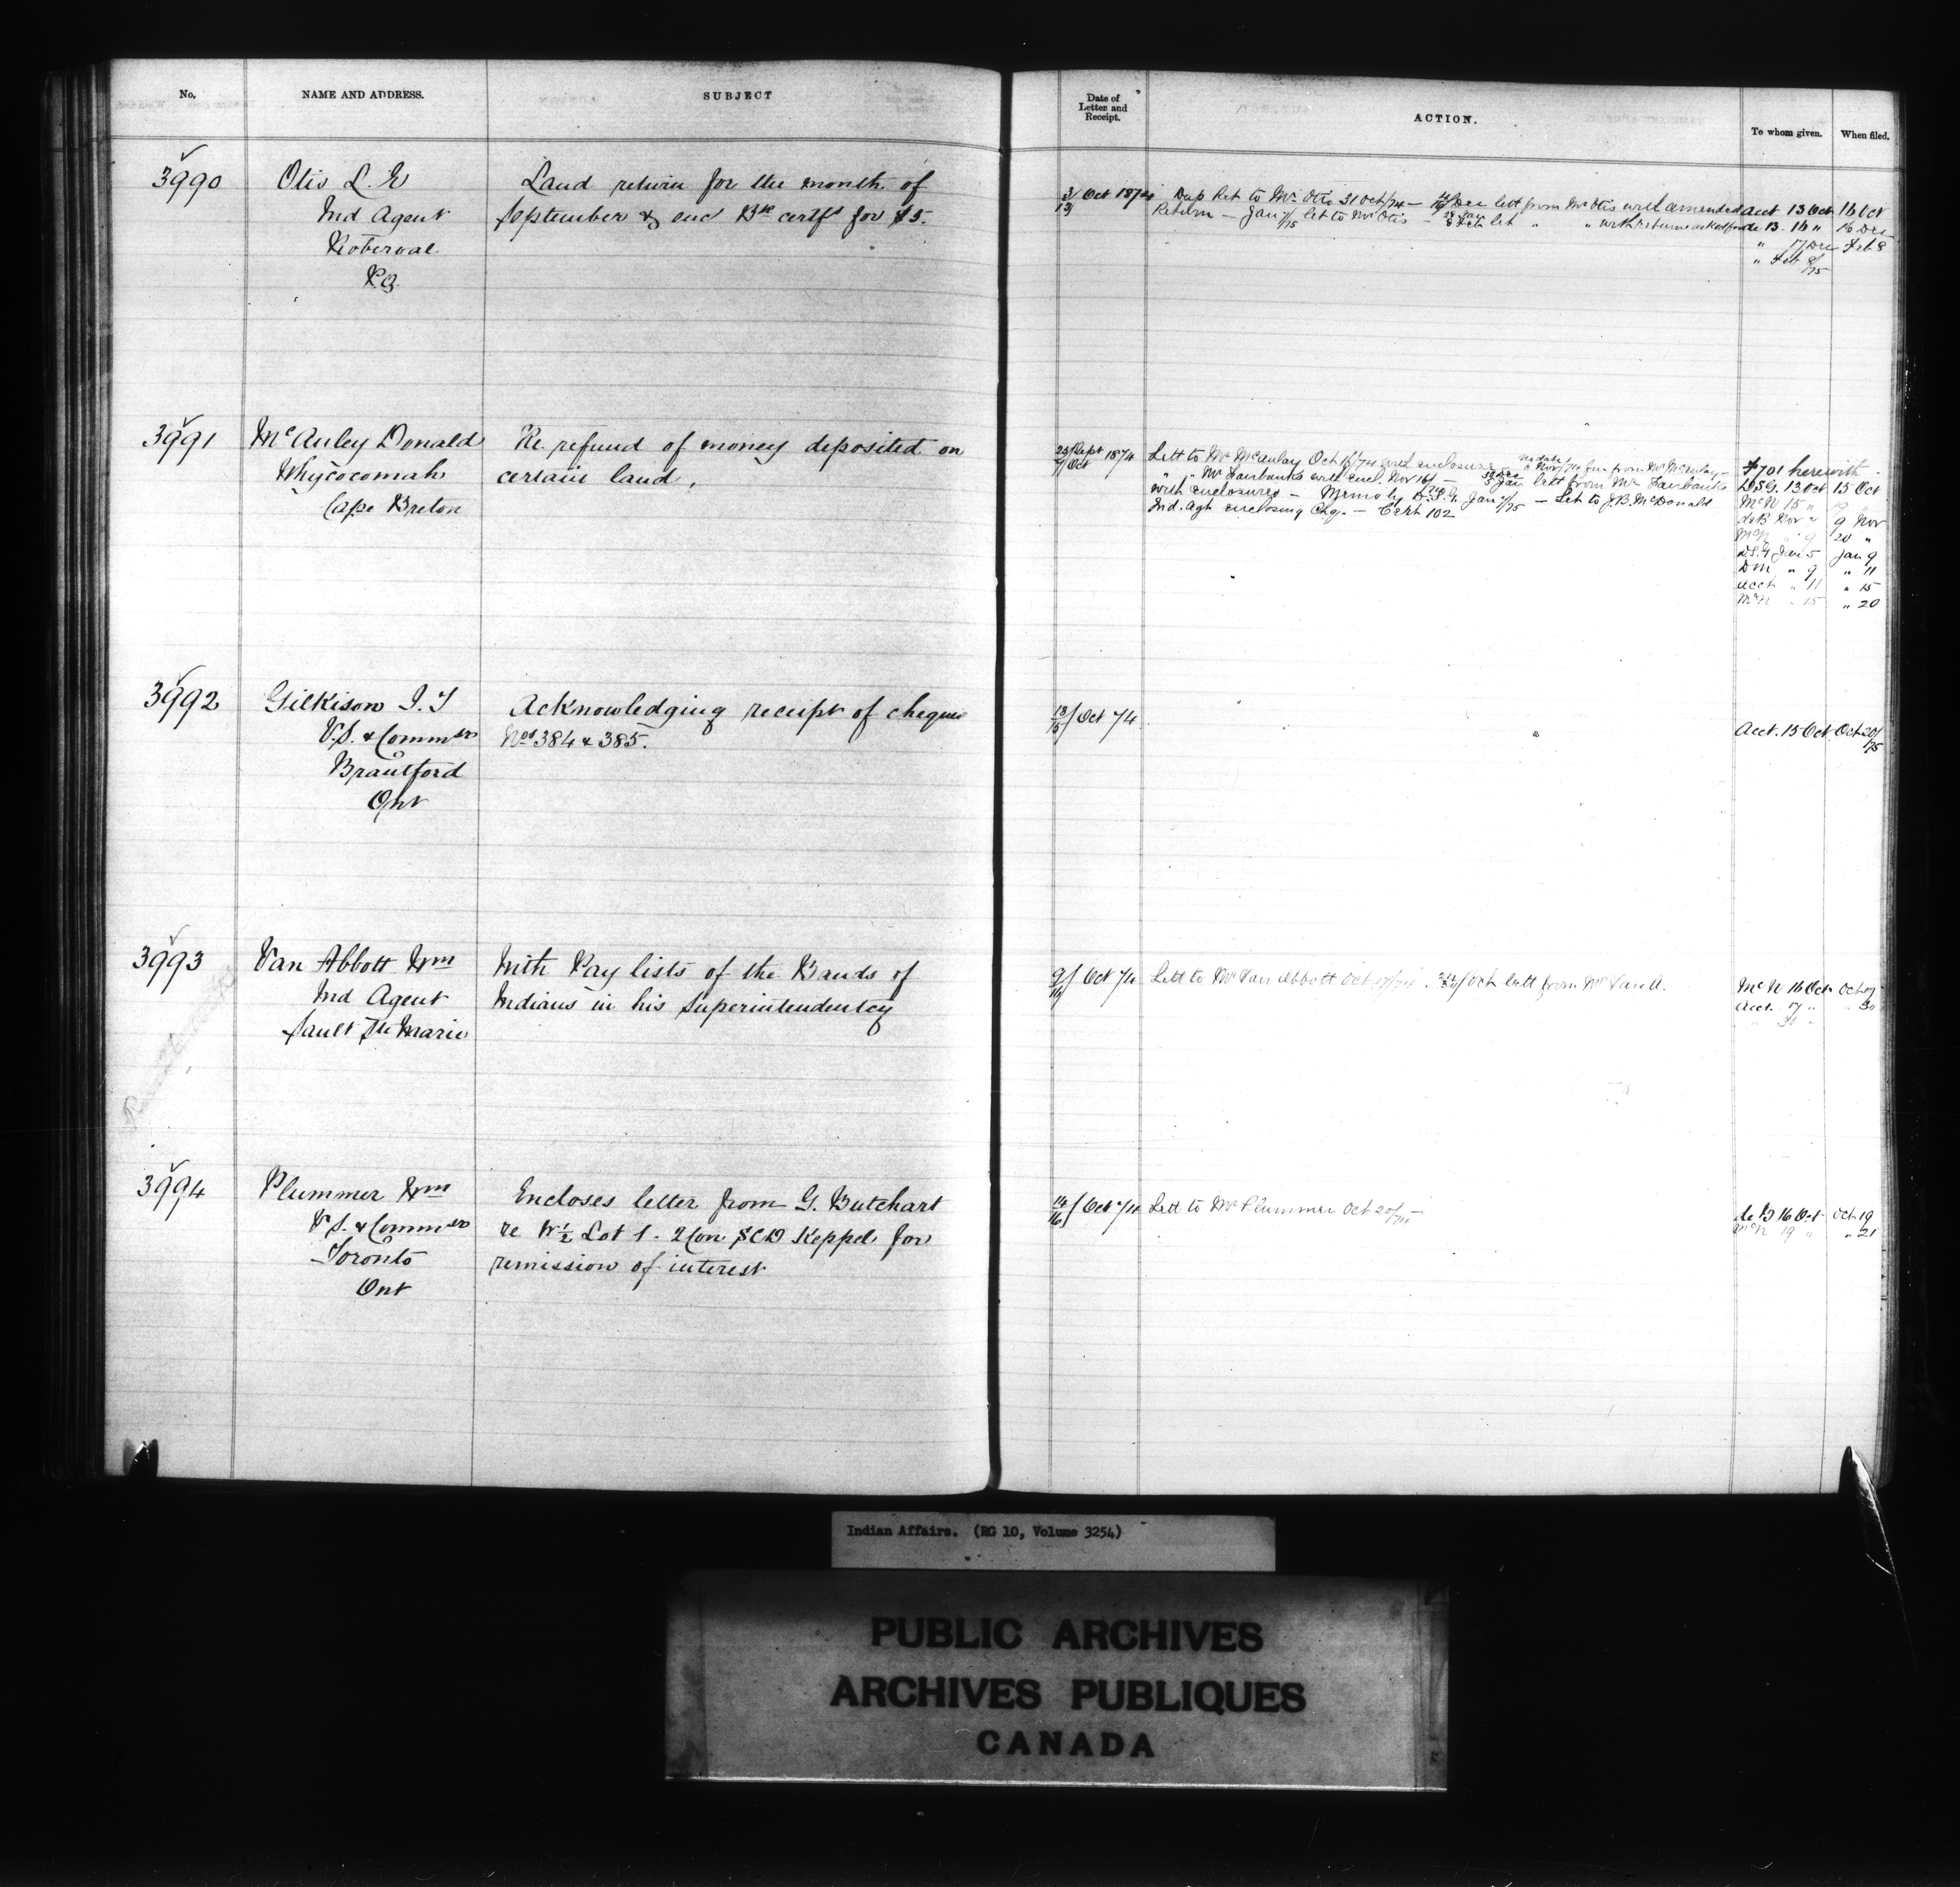 No.
NAME AND ADDRESS.
SUBJECT
Date of
Letter and
Receipt.
ACTION.
To whom given.
When filed.
3990
Otis L. E
Ind Agent
Roberval
P.Q.
Land return for the month of
September & enc Bk certft for $5.
3/ Oct 1874
13
Dep Ret to Mr Otis 31 Oct/74 — Dec lett from Mr Otis with amended
Return — Jany /75 let to Mr Otis — Feb let " " with return
Acct 13 Oct 16 Oct
de B. 16 " 16 Dec
" 17 Dec Feb 8
" Feb 8/75
3991
McAuley Donald
Whycocomah
Cape Breton
Re. refund of money deposited on
certain land.
Sept 1874
Oct
Lett to Mr McAulay Oct /74 with enclosure Nov/74 from Mr McAulay —
" " Mr Fairbanks with encl. Nov 16/ — Jan lett from Mr Fairbanks
with enclosures — Memo by Jan /75 — Let to J.B. McDonald
Ind. Agt enclosing Chq. — Cert 102
701 herewith
D.S.G. 13 Oct 15 Oct
McN 15 "
de B Nov 9 Nov
McN " 9 20 "
D.S.G Jan 5 Jan 9
DM " 9 " 11
Acct " 11 " 15
McN " 15 " 20
3992
Gilkison J. T
V.S. & Commsr
Brantford
Ont
Acknowledging receipt of cheques
Nos 384 & 385.
13/ Oct 74
15
Acct. 15 Oct. Oct 20/
75
3993
Van Abbott Wm
Ind Agent
Sault Ste Marie
With Pay lists of the Bands of
Indians in his Superintendentcy
9/ Oct 74
16
Lett to Mr Van Abbott Oct /74. Oct lett from Mr Van A.
McN 16 Oct Oct 17
Acct. 17 " " 30
" 30 "
3994
Plummer Wm
V.S. & Commsr
Toronto
Ont
Encloses letter from G. Butchart
re W½ Lot 1. 2 Con SCD Keppel for
remission of interest
14/ Oct 74
16
Lett to Mr Plummer Oct 20/74 —
de B 16 Oct Oct 19
McN 19 " " 21
Indian Affairs. (RG 10, Volume 3254)
PUBLIC ARCHIVES
ARCHIVES PUBLIQUES
CANADA